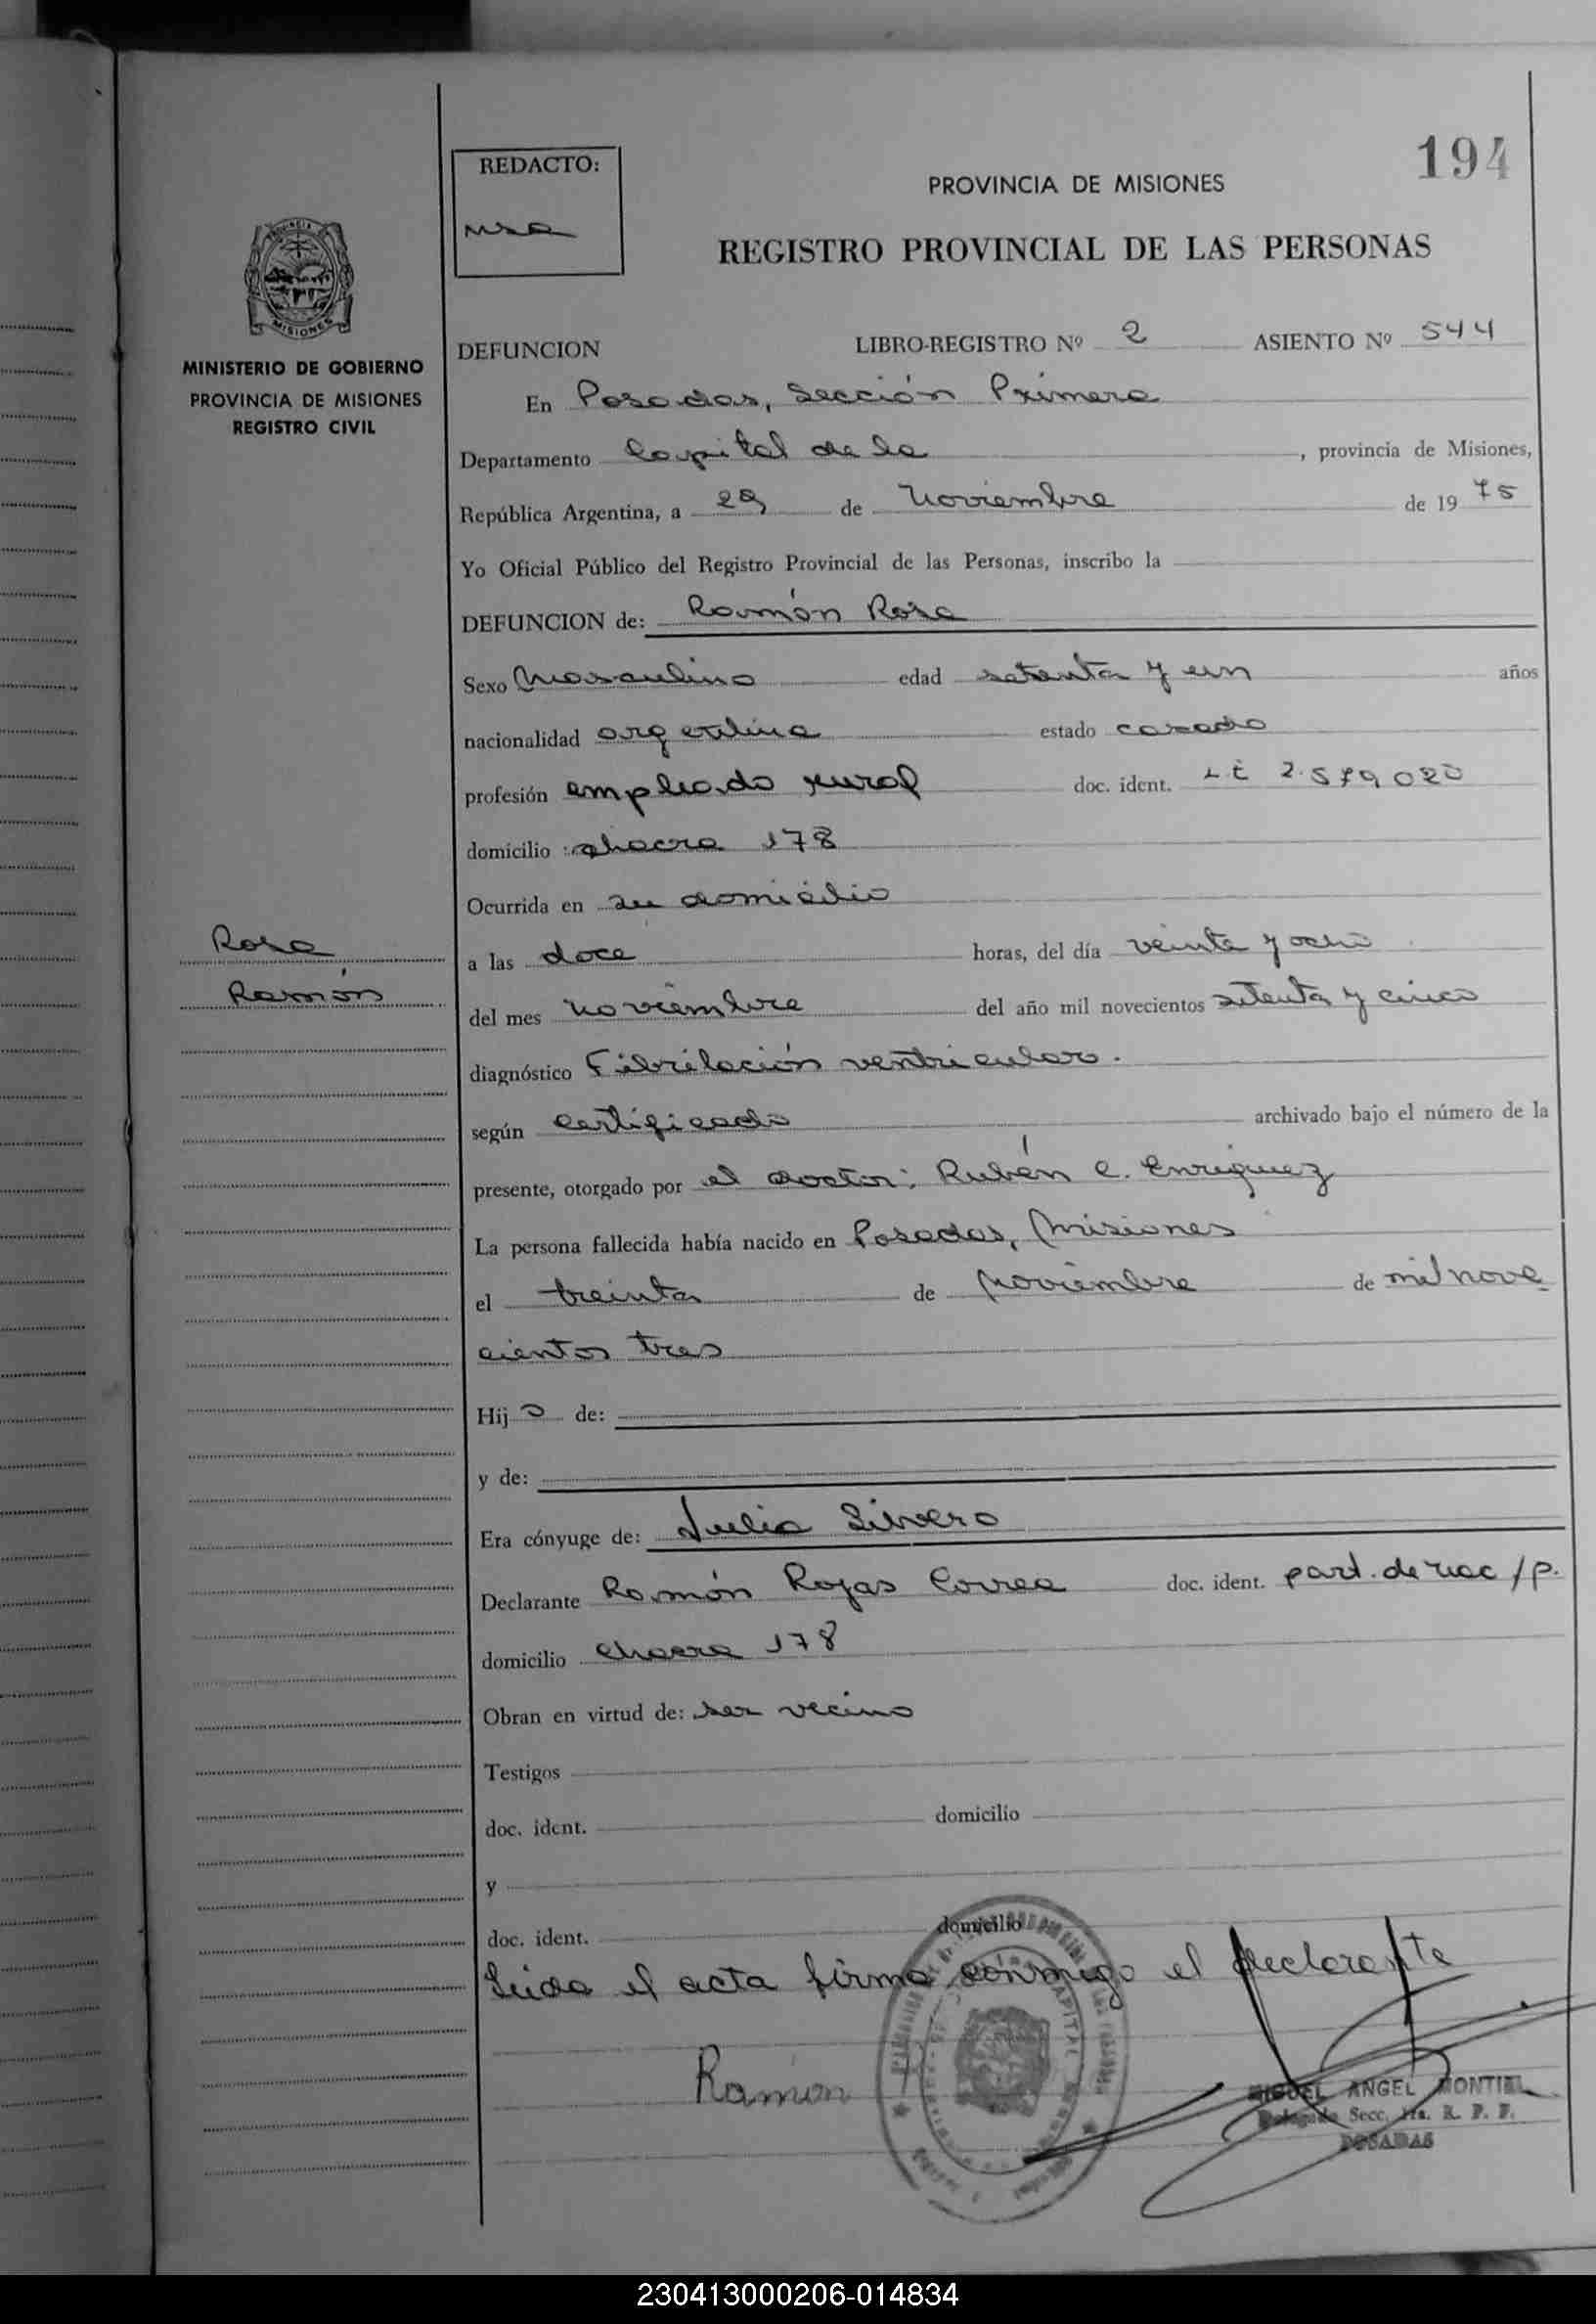 194
REDACTO:
PROVINCIA DE MISIONES
REGISTRO PROVINCIAL DE LAS PERSONAS
MISIONES
MINISTERIO DE GOBIERNO
PROVINCIA DE MISIONES
REGISTRO CIVIL
DEFUNCION LIBRO-REGISTRO Nº 2 ASIENTO Nº 544
En Posadas, Sección Primera
Departamento Capital de la , provincia de Misiones,
República Argentina, a 29 de Noviembre de 19 75
Yo Oficial Público del Registro Provincial de las Personas, inscribo la
DEFUNCION de: Ramón Rosa
Sexo Masculino edad setenta y un años
nacionalidad argentina estado casado
profesión empleado rural doc. ident. L.E 2.579020
domicilio : chacra 178
Ocurrida en su domicilio
Rosa
Ramón
a las doce horas, del día veinte y ocho
del mes noviembre del año mil novecientos setenta y cinco
diagnóstico Fibrilación ventricular.
según certificado archivado bajo el número de la
presente, otorgado por el doctor: Rubén C. Enriquez
La persona fallecida había nacido en Posadas, Misiones
el treinta de Noviembre de mil nove
cientos tres
Hij o de:
y de:
Era cónyuge de: Julia Silvero
Declarante Ramón Rojas Correa doc. ident. part. de nac /p.
domicilio chacra 178
Obran en virtud de: ser vecino
Testigos
doc. ident. domicilio
y
doc. ident. domicilio
Leida el acta firma conmigo el declarante
Ramon
CAPITAL
MIGUEL ANGEL MONTIEL
Delegado Secc. 1ra. R. P. P.
POSADAS
230413000206-014834